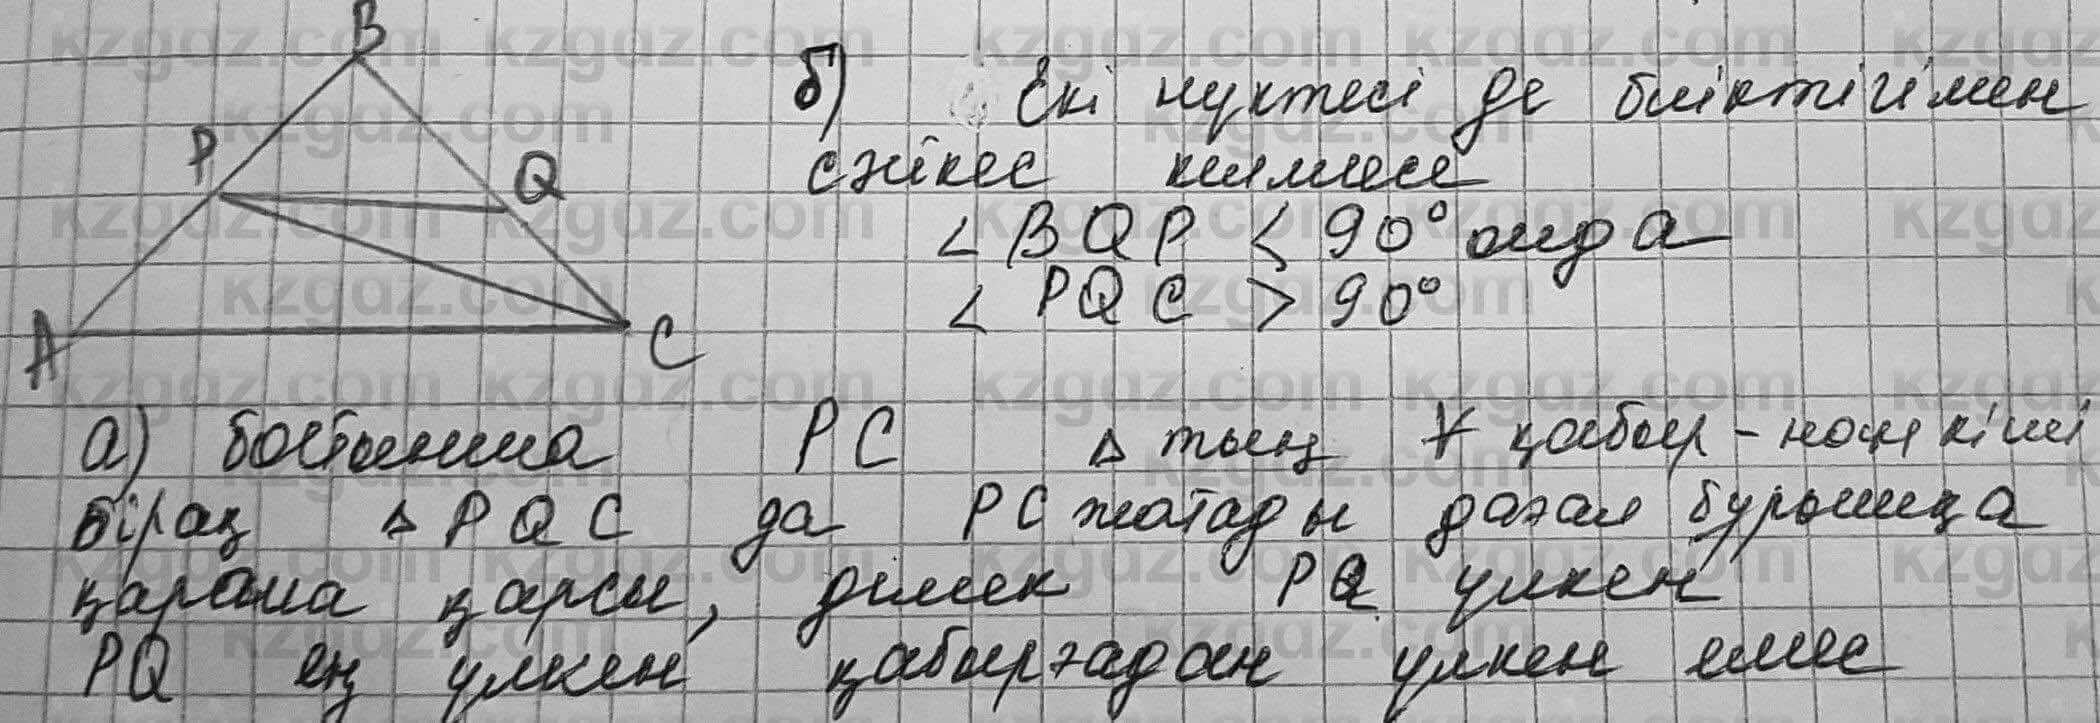 B
P
Q
A
C
б) Екі нүктесі де биіктігімен
сәйкес келмесе
< BQP < 90° онда
< PQC > 90°
а) бойынша PC △ тың қабыр-нан кіші
бірақ △ PQC да PC жатады доғал бұрышқа
қарама қарсы, демек PQ үлкен
PQ ең үлкен қабырғадан үлкен емес
kzgdz.com